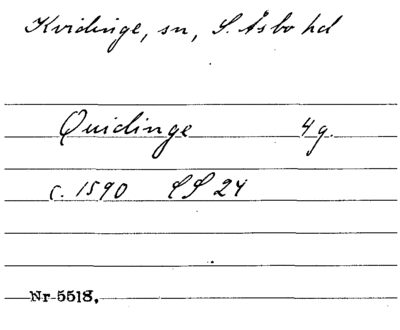 Kvidinge, sn, S. Åsbo hd
Quidinge 4 g.
c. 1590 LS 24
Nr 5513.